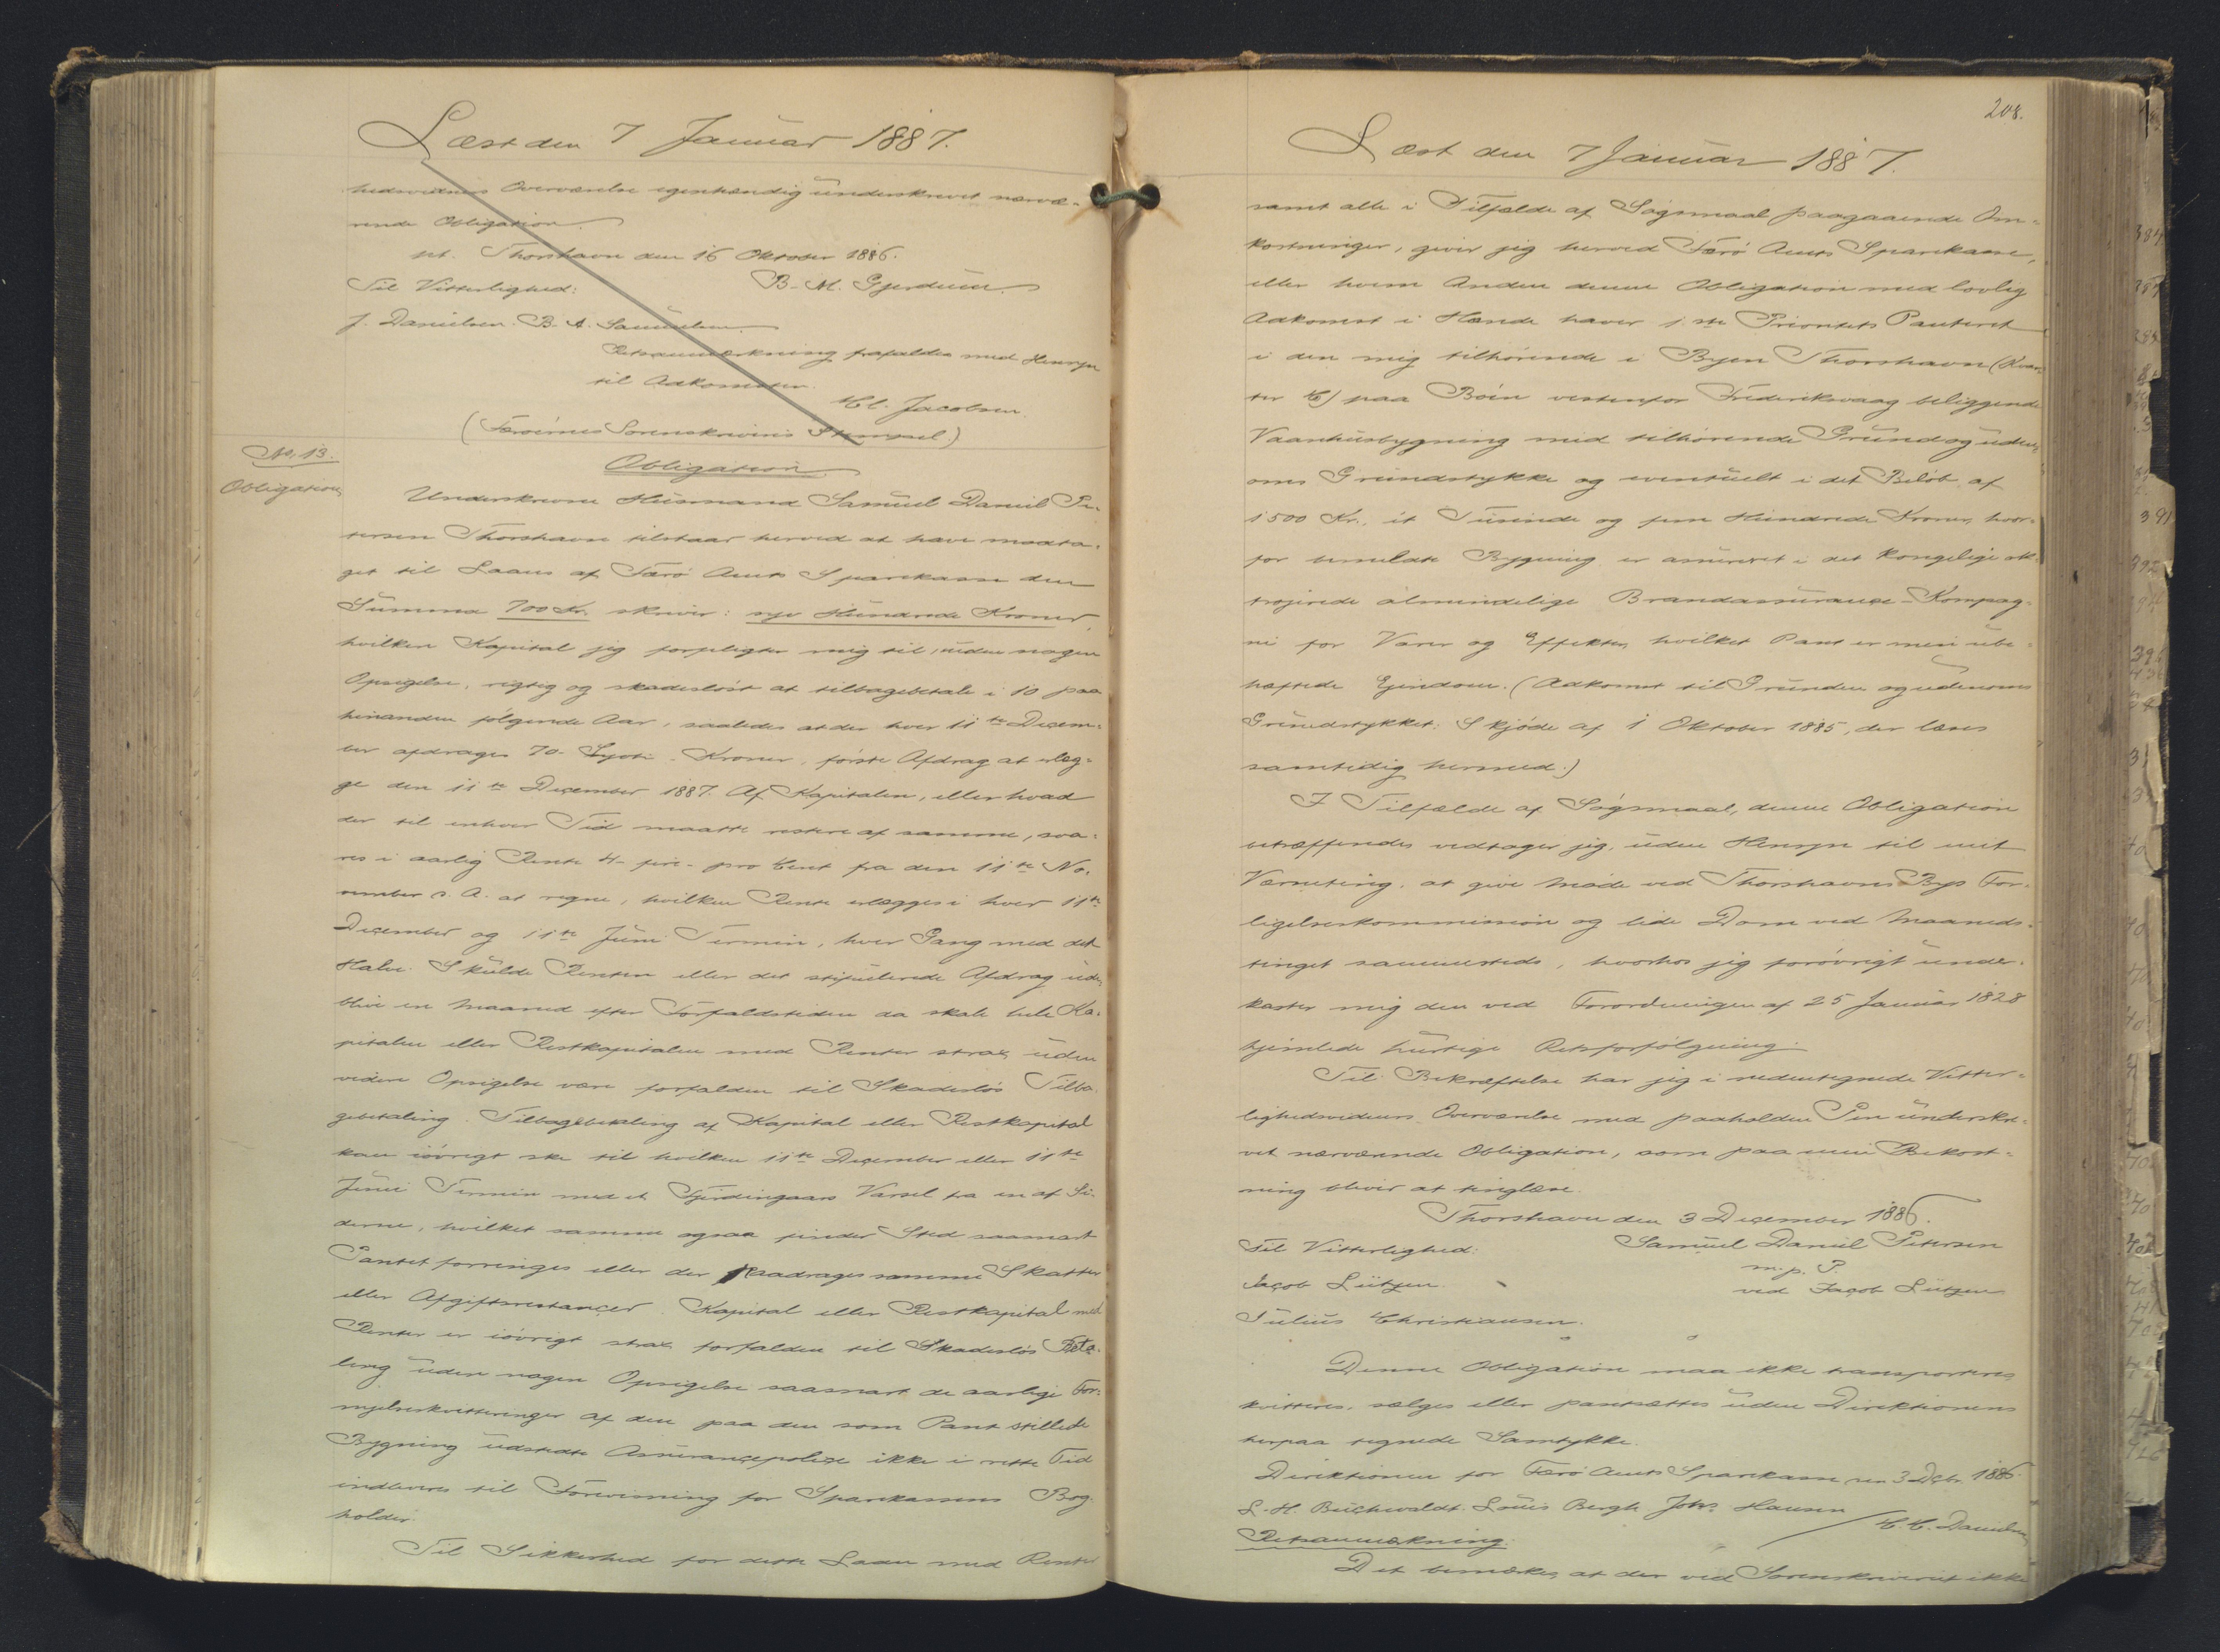 Læst den 7 Januar 1887.
hedsvidners Overværelse egenhændig underskrevet nærvæ-
rende Obligation.
pt. Thorshavn den 16 Oktober 1886.
Til Vitterlighed: B. M. Gjerduum.
J. Danielsen. B. A. Samuelsen.
Retsanmærkning frafaldes med Hensyn
til Adkomsten.
Cl. Jacobsen.
(Færøernes Sorenskriveris Stempel.)
No. 13.
Obligation
Obligation
Underskrevne Huusmand Samuel Daniel Pe-
tersen Thorshavn tilstaar herved at have modta-
get til Laans af Færø Amts Sparekasse den
Summa 700 Kr. skriver: syv Hundrede Kroner,
hvilken Kapital jeg forpligter mig til, uden nogen
Opsigelse, rigtig og skadesløst at tilbagebetale i 10 paa
hinanden følgende Aar, saaledes at der hver 11te Decem-
ber afdrages 70 - Syvti - Kroner, første Afdrag at erlæg-
ge den 11te December 1887. Af Kapitalen, eller hvad
der til enhver Tid maatte restere af samme, sva-
res i aarlig Rente 4 - fire - pro Cent fra den 11te No-
vember d. A. at regne, hvilken Rente erlægges i hver 11te
December og 11te Juni Termin, hver Gang med det
Halve. Skulde Renten eller det stipulerede Afdrag ude-
blive en Maaned efter Forfaldstiden da skale hele Ka-
pitalen eller Restkapitalen med Renter strax uden
videre Opsigelse være forfalden til Skadesløs Tilba-
gebetaling. Tilbagebetaling af Kapital eller Restkapital
kan iøvrigt ske til hvilken 11te December eller 11te
Juni Termin med et Fjerdingaars Varsel fra en af Si-
derne, hvilket samme ogsaa finder Sted saasnart
Pantet forringes eller der paadrages samme Skatter
eller Afgiftsrestancer. Kapital eller Restkapital med
Renter er iøvrigt strax forfalden til Skadesløs Beta-
ling uden nogen Opsigelse saasnart de aarlige For-
nyelseskvitteringer af den paa den som Pant stillede
Bygning udstedte Assurancepolice ikke i rette Tid
indleveres til Forevisning for Sparekassens Bog-
holder.
Til Sikkerhed for dette Laan med Renter
208.
Læst den 7 Januar 1887.
samt alle i Tilfælde af Søgsmaal paagaaende Om-
kostninger, giver jeg herved Færø Amts Sparekasse,
eller hvem Anden denne Obligation med lovlig
Adkomst i Hænde haver 1ste Prioritets Panteret
i den mig tilhørende i Byen Thorshavn (Kvar-
ter C) paa Bøin vestenfor Frederiksvaag beliggende
Vaanhusbygning med tilhørende Grund og uden-
oms Grundstykke og eventuelt i det Beløb af
1500 Kr., et Tusinde og fem Hundrede Kroner, hvor-
for bemeldte Bygning er assureret i det kongelige ok-
trojerede almindelige Brandassurance-Kompag-
ni for Varer og Effekter, hvilket Pant er min ube-
hæftede Ejendom. (Adkomst til Grunden og udenoms
Grundstykket: Skjøde af 1 Oktober 1885, der læses
samtidig hermed.)
I Tilfælde af Søgsmaal, denne Obligation
betræffendes vedtager jeg, uden Hensyn til mit
Værneting, at give Møde ved Thorshavns Bys For-
ligelseskommission og lide Dom ved Maaneds-
tinget sammesteds, hvorhos jeg forøvrigt under-
kaster mig den ved Forordningen af 25 Januar 1828
hjemlede hurtige Retsforfølgning.
Til Bekræftelse har jeg i nedentegnede Vitter-
lighedsvidners Overværelse med paaholden Pen underskre-
vet nærværende Obligation, som paa min Bekost-
ning bliver at tinglæse.
Thorshavn den 3 December 1886.
Til Vitterlighed: Samuel Daniel Petersen
m. p. P.
Jacob Lützen. ved Jacob Lützen
Julius Christiansen.
Denne Obligation maa ikke transporteres,
kvitteres, sælges eller pantsættes uden Direktionens
herpaa tegnede Samtykke.
Direktionen for Færø Amts Sparekasse den 3 Dcbr. 1886.
L. H. Buchwaldt. Louis Bergh Johs Hansen
/ C. C. Danielsen
Retsanmærkning.
Det bemærkes, at der ved Sorenskriveriet ikke